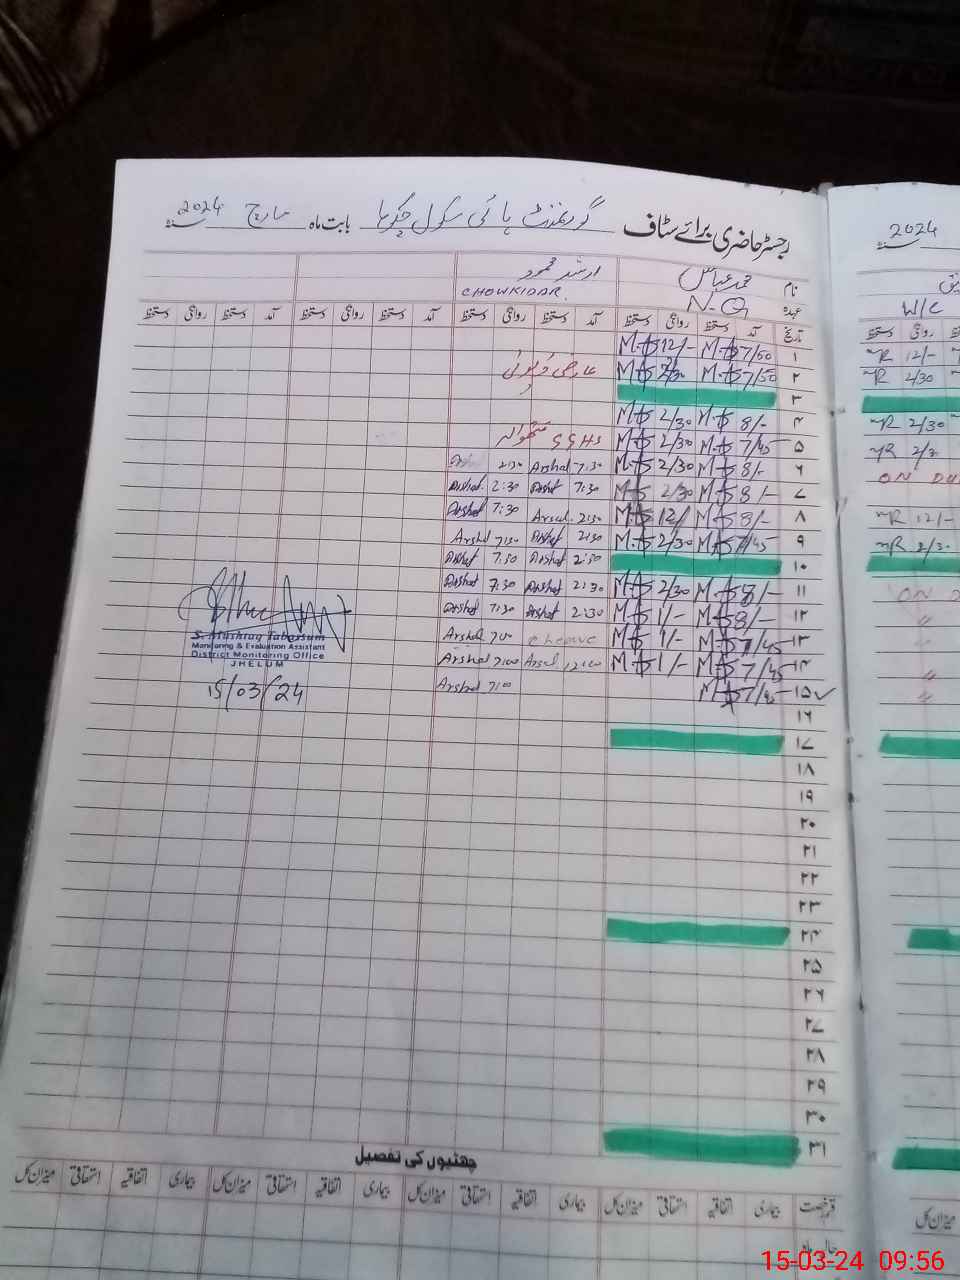 رجسٹر حاضری برائے سٹاف گورنمنٹ ہائی سکول چکوہا بابت ماہ مارچ 2024
2024
نام محمد عباس ارشد محمود
عہدہ N.Q CHOWKIDAR.
W/C
تاریخ آمد دستخط روانگی دستخط آمد دستخط روانگی دستخط آمد دستخط روانگی دستخط آمد دستخط روانگی دستخط
۱ 7/50 M.A 12/- M.A
12/-
۲ 7/50 M.A 2/30 M.A عارضی ڈیوٹی
2/30
۳
۴ 8/- M.A 2/30 M.A
2/30
۵ 7/45 M.A 2/30 M.A GGHS
۶ 8/- M.A 2/30 M.A 7:30 Arshad 2:30
ON DU
۷ 8/- M.A 2/30 M.A 7:30 Arshad 2:30 Arshad
۸ 8/- M.A 12/ M.A 2:30 Arshad 7:30 Arshad
12/-
۹ 7/45 M.A 2/30 M.A 2:30 Arshad 7:30 Arshad
2/30
۱۰ 2:30 Arshad 7:30 Arshad
۱۱ 8/- M.A 2/30 M.A 2:30 Arshad 7:30 Arshad
ON
۱۲ 8/- M.A 1/- M.A 2:30 Arshad 7:30 Arshad
۱۳ 7/45 M.A 1/- M.A 7:00 Arshad
۱۴ 7/45 M.A 1/- M.A 12:00 Arshad 7:00 Arshad
۱۵ 7/45 M.A 7:00 Arshad
S. Mushtaq Tabassum
Monitoring & Evaluation Assistant
District Monitoring Office
JHELUM
15/03/24
۱۶
۱۷
۱۸
۱۹
۲۰
۲۱
۲۲
۲۳
۲۴
۲۵
۲۶
۲۷
۲۸
۲۹
۳۰
۳۱
چھٹیوں کی تفصیل
قسم رخصت بیماری اتفاقیہ استحقاقی میزان کل بیماری اتفاقیہ استحقاقی میزان کل بیماری اتفاقیہ استحقاقی میزان کل بیماری اتفاقیہ استحقاقی میزان کل
میزان کل
حال ماہ
15-03-24 09:56